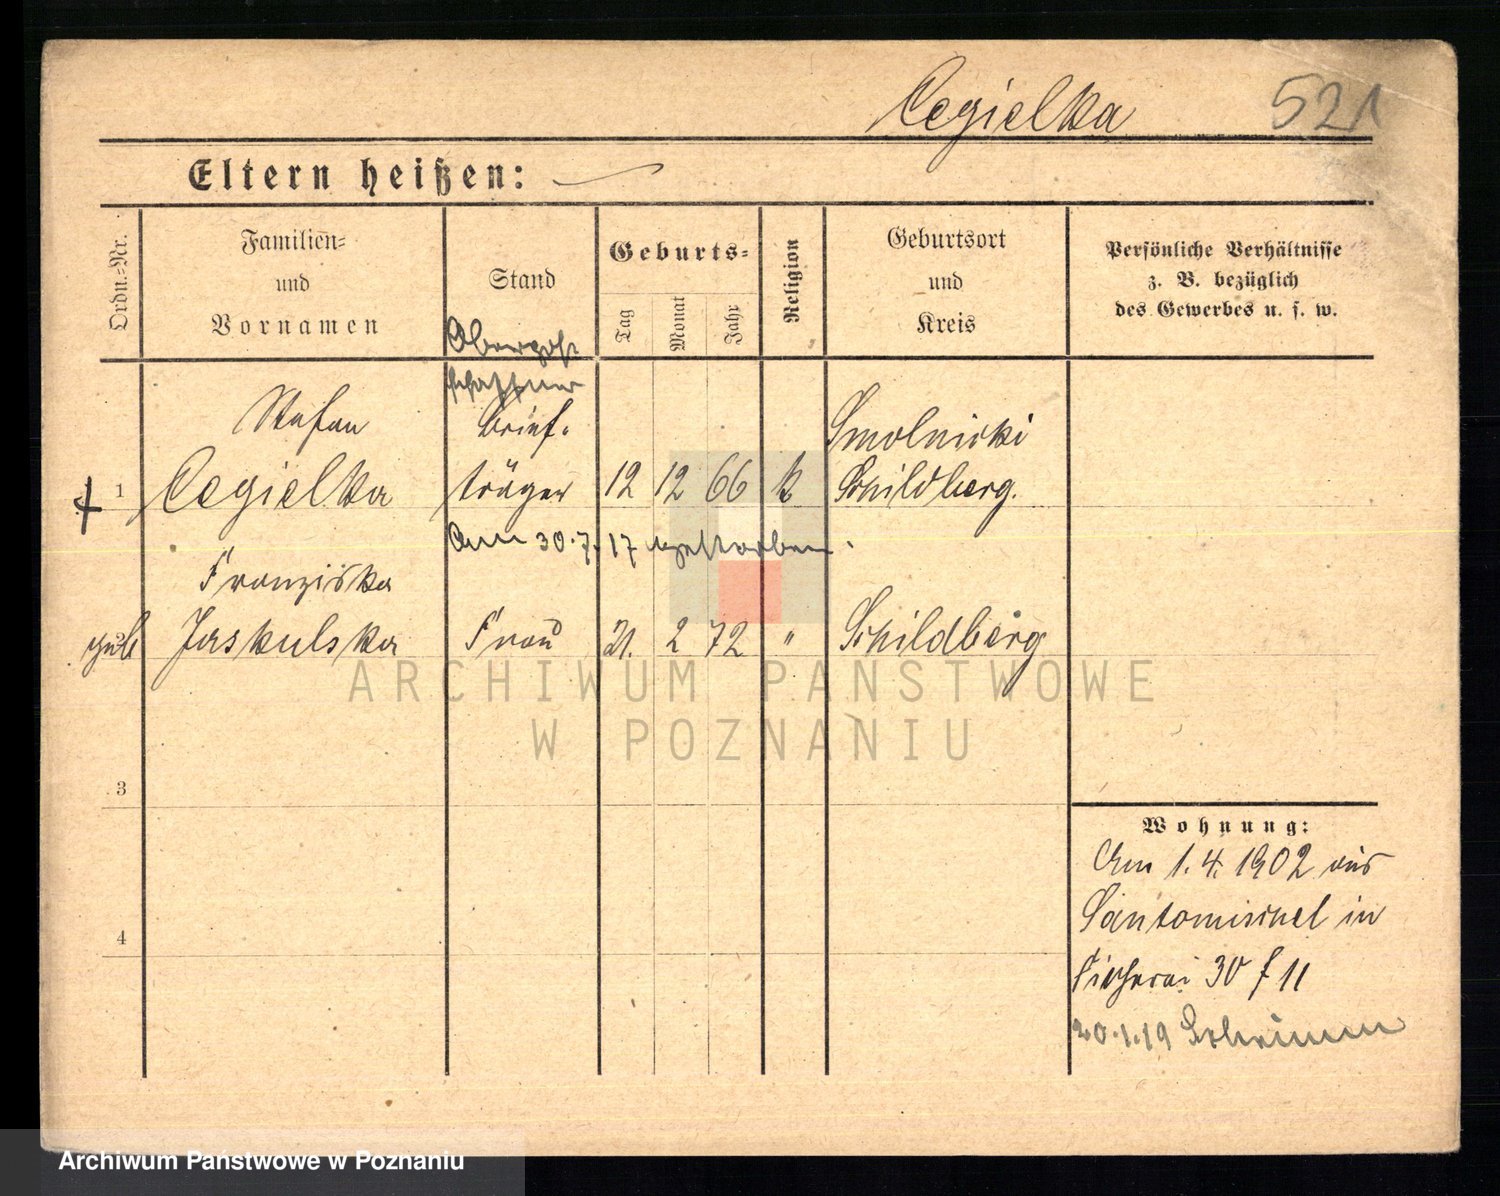 Cegielka 521
Eltern heißen:
Ordn.-Nr.
Familien-
und
Vornamen
Stand
Geburts-
Tag
Monat
Jahr
Religion
Geburtsort
und
Kreis
Persönliche Verhältnisse
z. B. bezüglich
des Gewerbes u. s. w.
Oberpost
schaffner
Stefan Brief- Smolnicki
1 Cegielka träger 12 12 66 k Schildberg.
Am 30.7.17 gestorben.
Franziska
geb Jaskulska Frau 21. 2 72 " Schildberg
3
4
Wohnung:
Am 1.4.1902 aus
Santomischel in
Fischerei 30 f 11
20.1.19 Schrimm
ARCHIWUM PAŃSTWOWE
W POZNANIU
Archiwum Państwowe w Poznaniu